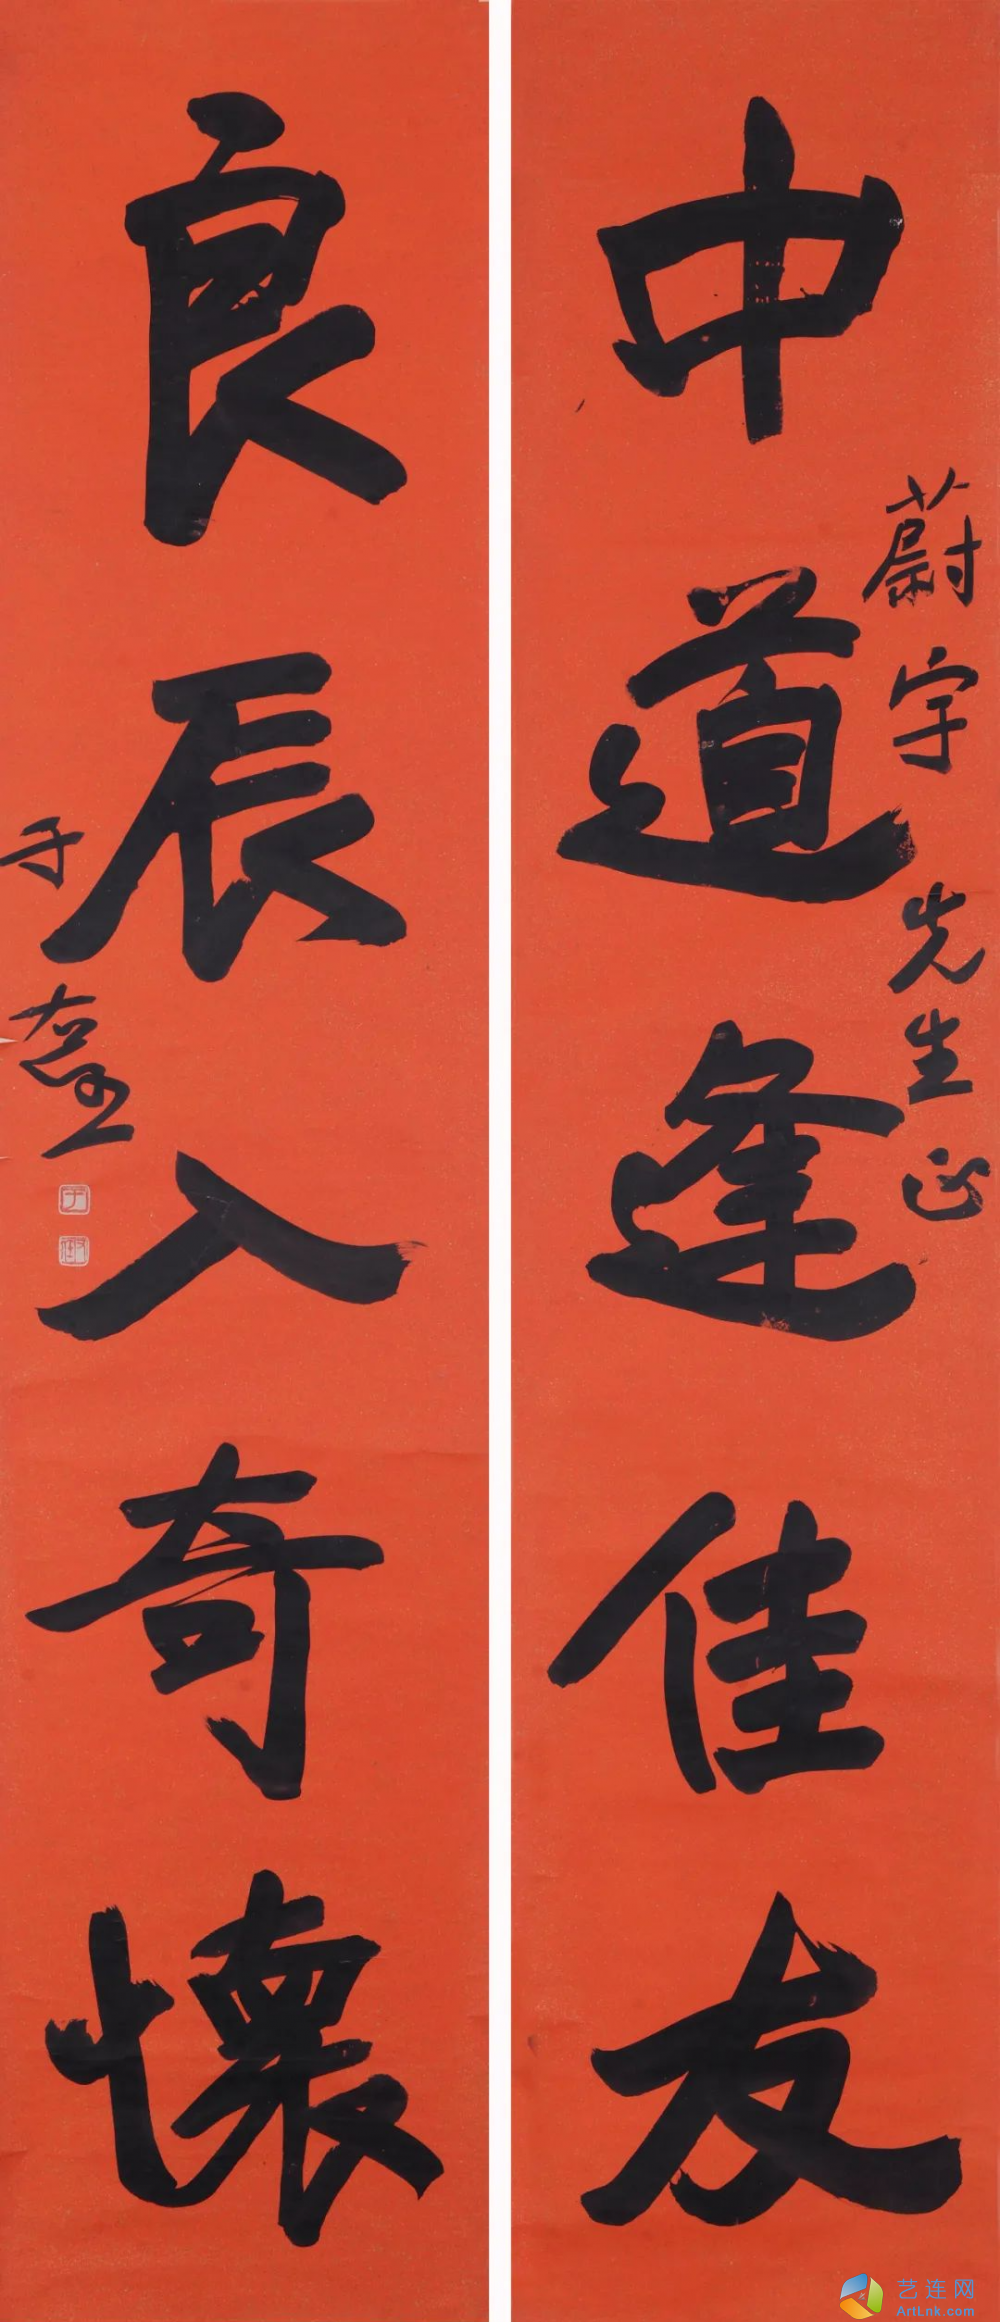 中道逢佳友
蔚宇先生正
良辰入奇懷
于右任
艺连网
ArtLnk.com